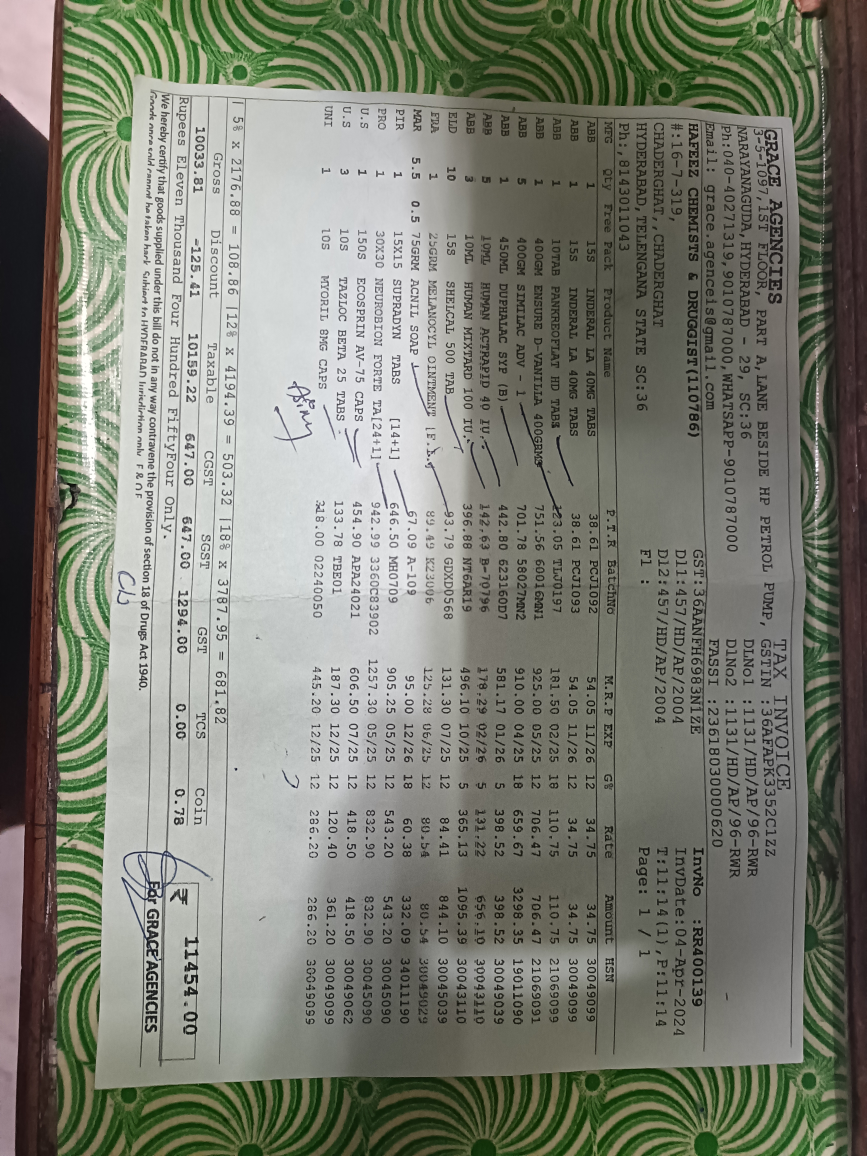 TAX INVOICE
GRACE AGENCIES
3-5-1097,1ST FLOOR, PART A,LANE BESIDE HP PETROL PUMP, GSTIN :36AFAPK3352C1ZZ
NARAYANAGUDA,HYDERABAD - 29, SC:36 DLNo1 :1131/HD/AP/96-RWR
Ph:040-40271319,9010787000,WHATSAPP-9010787000 DlNo2 :1131/HD/AP/96-RWR
Email: grace.agenceis@gmail.com FASSI :23618030000620
HAFEEZ CHEMISTS & DRUGGIST(110786) GST:36AANFH6983N1ZE InvNo :RR400139
#:16-7-319, D11:457/HD/AP/2004 InvDate:04-Apr-2024
CHADERGHAT,,CHADERGHAT D12:457/HD/AP/2004 T:11:14(1),P:11:14
HYDERABAD,TELENGANA STATE SC:36 Fl : Page: 1 / 1
Ph:,8143011043
MFG Qty Free Pack Product Name P.T.R BatchNo M.R.P EXP G% Rate Amount HSN
ABB 1 15S INDERAL LA 40MG TABS 38.61 PCJ1092 54.05 11/26 12 34.75 34.75 30049099
ABB 1 15S INDERAL LA 40MG TABS 38.61 PCJ1093 54.05 11/26 12 34.75 34.75 30049099
ABB 1 10TAB PANKREOFLAT HD TABS 123.05 TLJ0197 181.50 02/25 18 110.75 110.75 21069099
ABB 1 400GM ENSURE D-VANILLA 400GRMS 751.56 60016MN1 925.00 05/25 12 706.47 706.47 21069091
ABB 5 400GM SIMILAC ADV - 1 701.78 58027MN2 910.00 04/25 18 659.67 3298.35 19011090
ABB 1 450ML DUPHALAC SYP (B) 442.80 62316OD7 581.17 01/26 5 398.52 398.52 30049039
ABB 5 10ML HUMAN ACTRAPID 40 IU. 142.63 B-70796 178.29 02/26 5 131.22 656.10 30043110
ABB 3 10ML HUMAN MIXTARD 100 IU. 396.88 NT6AR19 496.10 10/25 5 365.13 1095.39 30043110
ELD 10 15S SHELCAL 500 TAB 93.79 GDXD0568 131.30 07/25 12 84.41 844.10 30045039
FRA 1 25GRM MELANOCYL OINTMENT 89.49 K23006 125.28 06/25 12 80.54 80.54 30049029
MAR 5.5 0.5 75GRM ACNIL SOAP 67.09 A-109 95.00 12/26 18 60.38 332.09 34011190
PIR 1 15X15 SUPRADYN TABS [14+1] 646.50 MH0709 905.25 05/25 12 543.20 543.20 30045090
PRO 1 30X30 NEUROBION FORTE TA[24+1] 942.99 3360C83902 1257.30 05/25 12 832.90 832.90 30045090
U.S 1 150S ECOSPRIN AV-75 CAPS 454.90 APA24021 606.50 07/25 12 418.50 418.50 30049062
U.S 3 10S TAZLOC BETA 25 TABS 133.78 TBE01 187.30 12/25 12 120.40 361.20 30049099
UNI 1 10S MYORIL 8MG CAPS 318.00 02240050 445.20 12/25 12 286.20 286.20 30049099
5% x 2176.88 = 108.86 |12% x 4194.39 = 503.32 |18% x 3787.95 = 681.82
Gross Discount Taxable CGST SGST GST TCS Coin
10033.81 -125.41 10159.22 647.00 647.00 1294.00 0.00 0.78 ₹ 11454.00
Rupees Eleven Thousand Four Hundred FiftyFour Only.
We hereby certify that goods supplied under this bill do not in any way contravene the provision of section 18 of Drugs Act 1940. For GRACE AGENCIES
Goods once sold cannot be taken back. Subject to HYDERABAD Jurisdiction only. E & O E